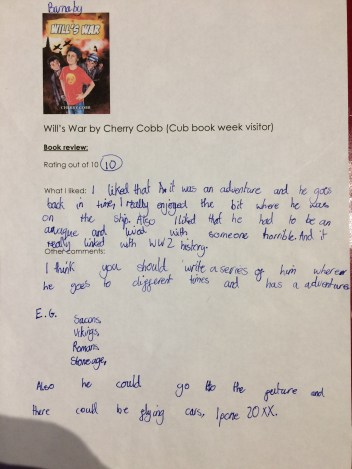 Barnaby
WILL'S WAR
CHERRY COBB
Will's War by Cherry Cobb (Cub book week visitor)
Book review:
Rating out of 10 10
What I liked: I liked that it was an adventure and he goes
back in time, I really enjoyed the bit where he was
on the ship. Also I liked that he had to be an
and lived with someone horrible. And it
really linked with WW2 history.
Other comments:
I think you should write a series of him where
he goes to different times and has a adventure
E.G. Sacons,
Vikings,
Romans,
Stoneage,
Also he could go to the future and
there could be flying cars, Ipone 20XX.